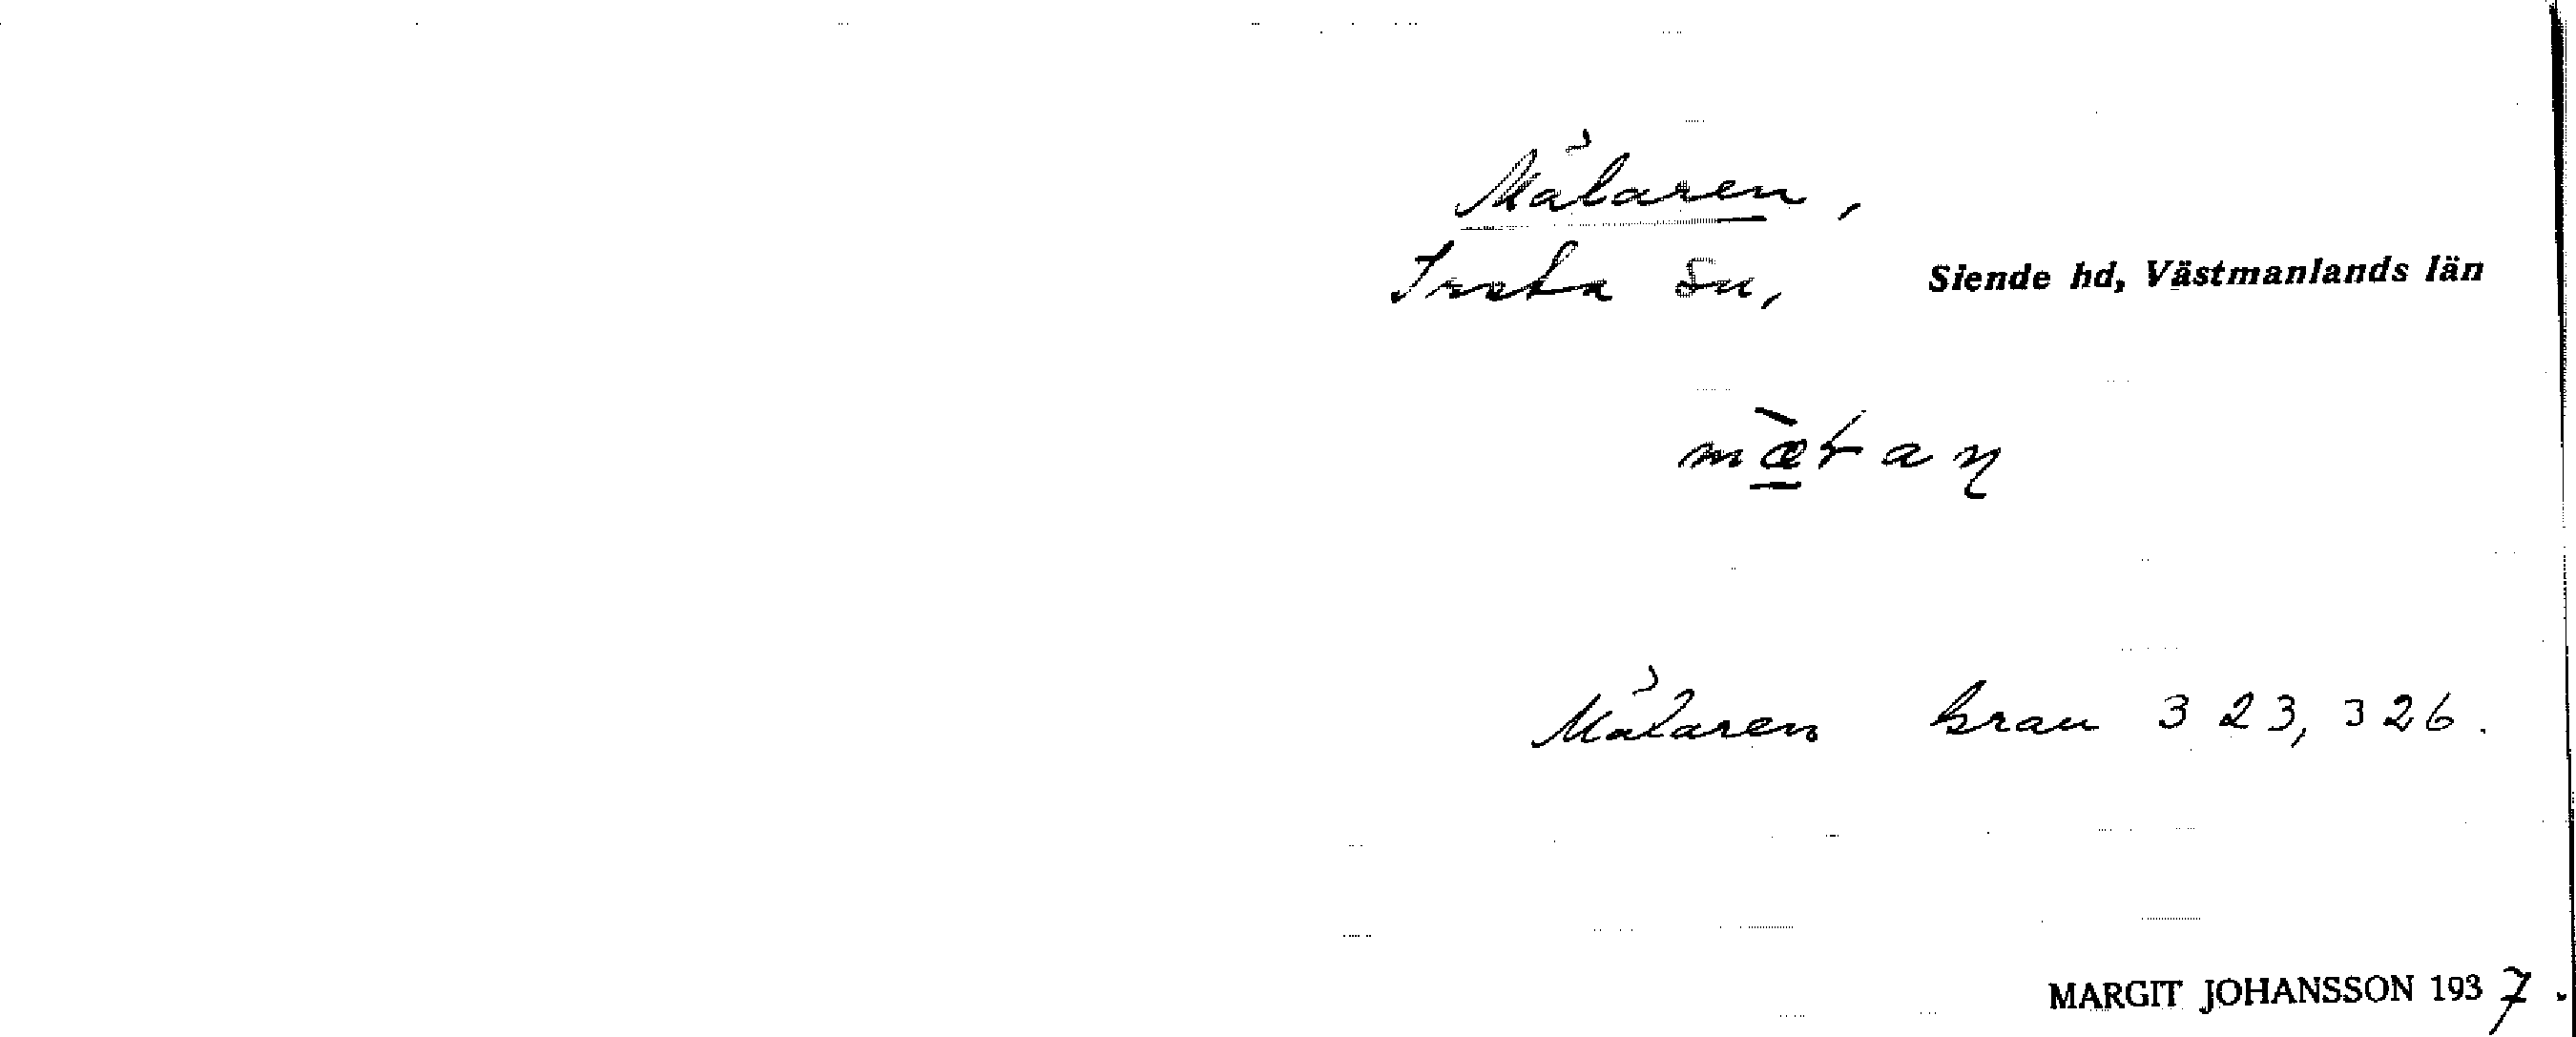 Mälaren,
Irsta sn, Siende hd, Västmanlands län
Mälaren Gran 323, 326.
MARGIT JOHANSSON 1937.